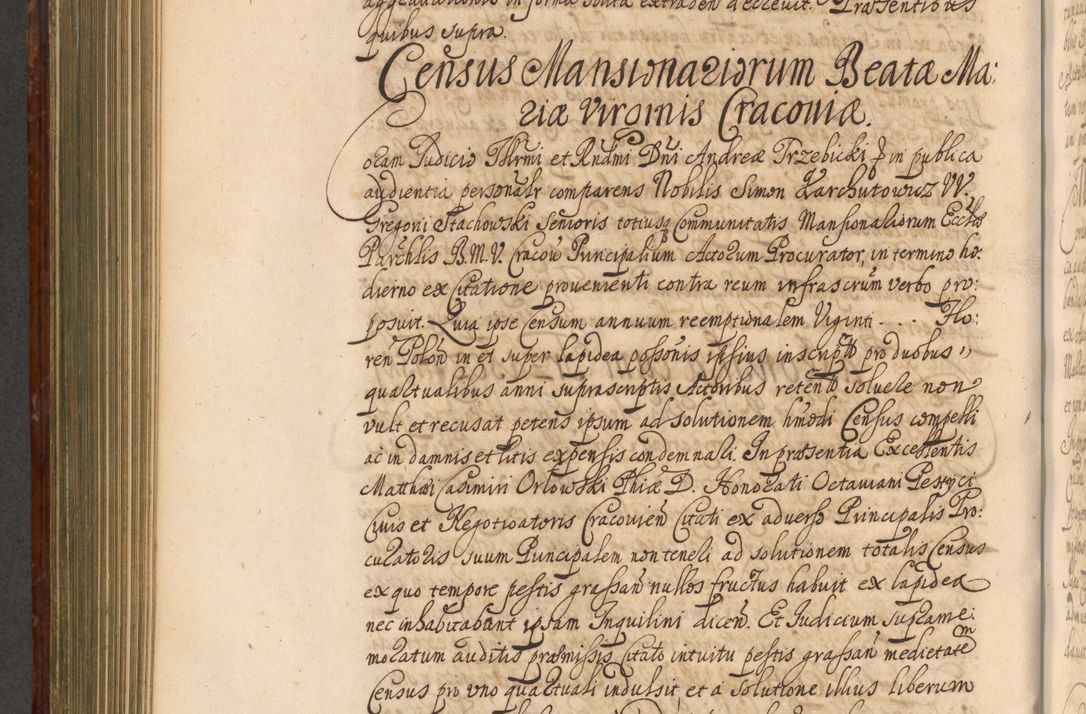 aggravationis in forma solita extraden decrevit. Præsentibus
quibus supra.
Census Mansionariorum Beatæ Ma:
riæ Virginis Cracoviæ.
oram Judicio Illmi et Rndmi Dni Andreæ Trzebicki in publica
audientia personalr comparens Nobilis Simon Karchutowicz VV.
Gregorii Stachowski Senioris totiusq Communitatis Mansionariorum Eccliæ
Parchlis B. M. V. Cracow Principalium Actorum Procurator, in termino ho:
dierno ex Citatione provenienti contra reum infrascrum verbo pro:
posuit. Quia ipse Censum annuum reemptionalem Viginti .... Flo:
ren Polon in et super lapidea possonis ipsius inscriptto pro duobus
quartualibus anni suprascriptis Actoribus retento solvere non
vult et recusat petens ipsum ad solutionem hmodi Census compelli
ac in damnis et litis expensis condemnari. In præsentia Excellentis
Matthæi Casimiri Orlowski Phiæ D. Honorati Octaviani Pestyci
Civis et Negotiatoris Cracovien Citati ex adverso Principalis Pro:
curatoris suum Principalem non teneri ad solutionem totalis Census
ex quo tempore pestis grassan nullos fructus habuit ex lapidea
nec inhabitabant ipsam Inquilini dicen. Et Judicium suprame:
moratum auditis præmissis Citato intuitu pestis grassan medietatem
Census pro uno quartuali indulsit et a solutione illius liberum